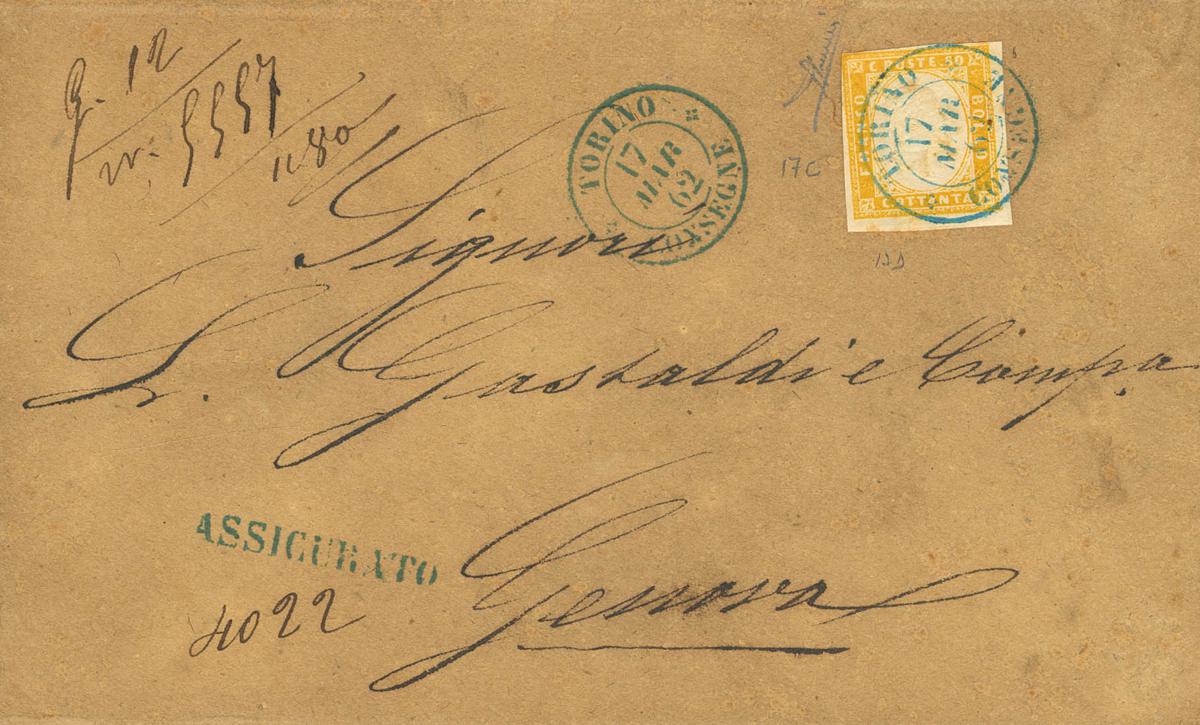 g. 12
n. 5557
1180
TORINO
17
MAR
62
CONSEGNE
C. POSTE. 50
FRANCO
BOLLO
C. OTTANTA
TORINO
17
MAR
62
CONSEGNE
17C
Signori
L. Gastaldi e Compa.
Genova
ASSICURATO
4022